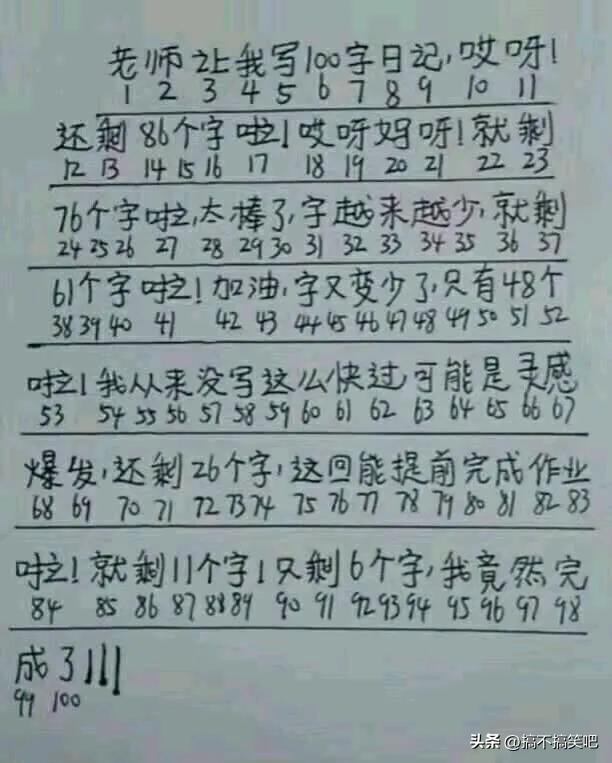 老师让我写100字日记，哎呀！
1 2 3 4 5 6 7 8 9 10 11
还剩86个字啦！哎呀妈呀！就剩
12 13 14 15 16 17 18 19 20 21 22 23
76个字啦，太棒了，字越来越少，就剩
24 25 26 27 28 29 30 31 32 33 34 35 36 37
61个字啦！加油，字又变少了，只有48个
38 39 40 41 42 43 44 45 46 47 48 49 50 51 52
啦！我从来没写这么快过，可能是灵感
53 54 55 56 57 58 59 60 61 62 63 64 65 66 67
爆发，还剩26个字，这回能提前完成作业
68 69 70 71 72 73 74 75 76 77 78 79 80 81 82 83
啦！就剩11个字！只剩6个字，我竟然完
84 85 86 87 88 89 90 91 92 93 94 95 96 97 98
成了！！！
99 100
头条 @搞不搞笑吧